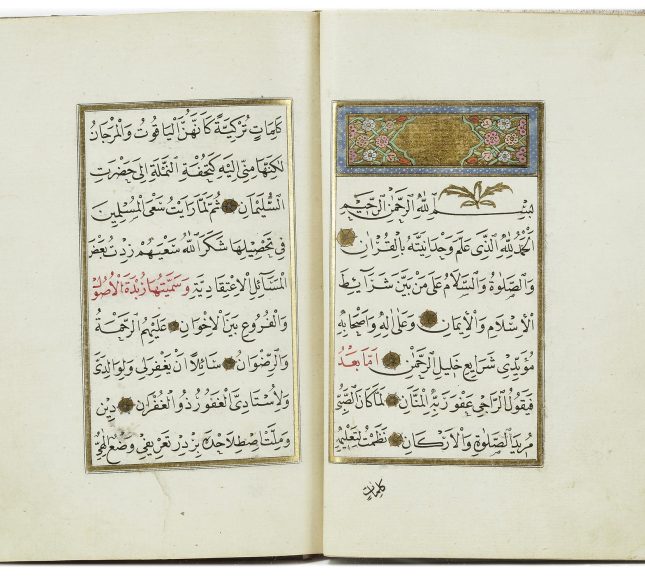 بسم الله الرحمن الرحيم
الحمد لله الذي علم وحدانيته بالقران
والصلوة والسلام على من بين شرائط
الاسلام والايمان وعلى اله واصحابه
مؤيدى شرايع خليل الرحمن اما بعد
فيقول الراجى عفو ربه المنان لما كان الصبى
مريد الصلوة والاركان نظمت لتعليمه
كلمات
كلمات تركية كانهن الياقوت والمرجان
لكنها منى اليه كتحفة النملة الى حضرت
السليمان ثم لما رايت سعى المسلمين
فى تحصيلها شكر الله سعيهم زدت بعض
المسائل الاعتقادية وسميتها زبدة الاصول
والفروع بين الاخوان عليهم الرحمة
والرضوان سائلا ان يغفر لى ولوالدى
ولاستادى الغفور ذو الغفران دين
وملت اصطلاحده بردر تعريفى وضع الهى